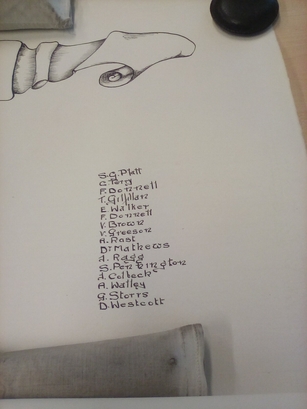 S.G. Platt
C. Perry
F. Donnell
T. Gilfillan
E. Walker
F. Donnell
V. Brown
V. Greeson
A. Rost
D. Mathews
A. Ragg
S. Penington
A. Colbeck
A. Walley
G. Storrs
D. Westcott